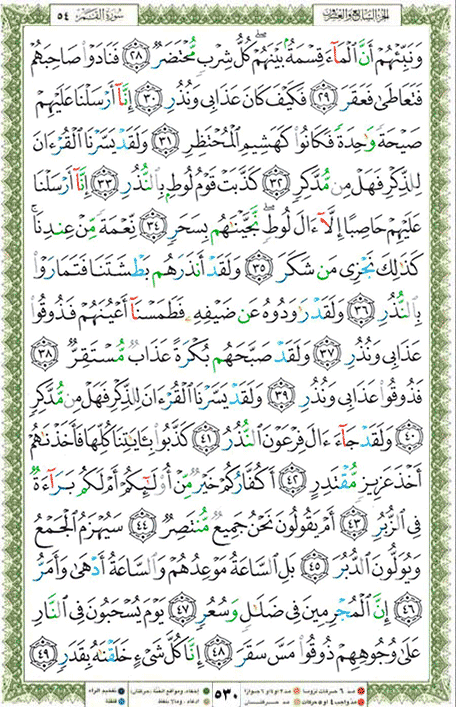 سورة القمر ٥٤ الجزء السابع والعشرون
وَنَبِّئْهُمْ أَنَّ ٱلْمَآءَ قِسْمَةٌۢ بَيْنَهُمْ ۖ كُلُّ شِرْبٍ مُّحْتَضَرٌ ٢٨ فَنَادَوْا۟ صَاحِبَهُمْ
فَتَعَاطَىٰ فَعَقَرَ ٢٩ فَكَيْفَ كَانَ عَذَابِى وَنُذُرِ ٣٠ إِنَّآ أَرْسَلْنَا عَلَيْهِمْ
صَيْحَةً وَٰحِدَةً فَكَانُوا۟ كَهَشِيمِ ٱلْمُحْتَظِرِ ٣١ وَلَقَدْ يَسَّرْنَا ٱلْقُرْءَانَ
لِلذِّكْرِ فَهَلْ مِن مُّدَّكِرٍ ٣٢ كَذَّبَتْ قَوْمُ لُوطٍۭ بِٱلنُّذُرِ ٣٣ إِنَّآ أَرْسَلْنَا
عَلَيْهِمْ حَاصِبًا إِلَّآ ءَالَ لُوطٍ ۖ نَّجَّيْنَٰهُم بِسَحَرٍ ٣٤ نِّعْمَةً مِّنْ عِندِنَا ۚ
كَذَٰلِكَ نَجْزِى مَن شَكَرَ ٣٥ وَلَقَدْ أَنذَرَهُم بَطْشَتَنَا فَتَمَارَوْا۟
بِٱلنُّذُرِ ٣٦ وَلَقَدْ رَٰوَدُوهُ عَن ضَيْفِهِۦ فَطَمَسْنَآ أَعْيُنَهُمْ فَذُوقُوا۟
عَذَابِى وَنُذُرِ ٣٧ وَلَقَدْ صَبَّحَهُم بُكْرَةً عَذَابٌ مُّسْتَقِرٌّ ٣٨
فَذُوقُوا۟ عَذَابِى وَنُذُرِ ٣٩ وَلَقَدْ يَسَّرْنَا ٱلْقُرْءَانَ لِلذِّكْرِ فَهَلْ مِن مُّدَّكِرٍ
٤٠ وَلَقَدْ جَآءَ ءَالَ فِرْعَوْنَ ٱلنُّذُرُ ٤١ كَذَّبُوا۟ بِـَٔايَٰتِنَا كُلِّهَا فَأَخَذْنَٰهُمْ
أَخْذَ عَزِيزٍ مُّقْتَدِرٍ ٤٢ أَكُفَّارُكُمْ خَيْرٌ مِّنْ أُو۟لَٰٓئِكُمْ أَمْ لَكُم بَرَآءَةٌ
فِى ٱلزُّبُرِ ٤٣ أَمْ يَقُولُونَ نَحْنُ جَمِيعٌ مُّنتَصِرٌ ٤٤ سَيُهْزَمُ ٱلْجَمْعُ
وَيُوَلُّونَ ٱلدُّبُرَ ٤٥ بَلِ ٱلسَّاعَةُ مَوْعِدُهُمْ وَٱلسَّاعَةُ أَدْهَىٰ وَأَمَرُّ
٤٦ إِنَّ ٱلْمُجْرِمِينَ فِى ضَلَٰلٍ وَسُعُرٍ ٤٧ يَوْمَ يُسْحَبُونَ فِى ٱلنَّارِ
عَلَىٰ وُجُوهِهِمْ ذُوقُوا۟ مَسَّ سَقَرَ ٤٨ إِنَّا كُلَّ شَىْءٍ خَلَقْنَٰهُ بِقَدَرٍ ٤٩
٥٣٠